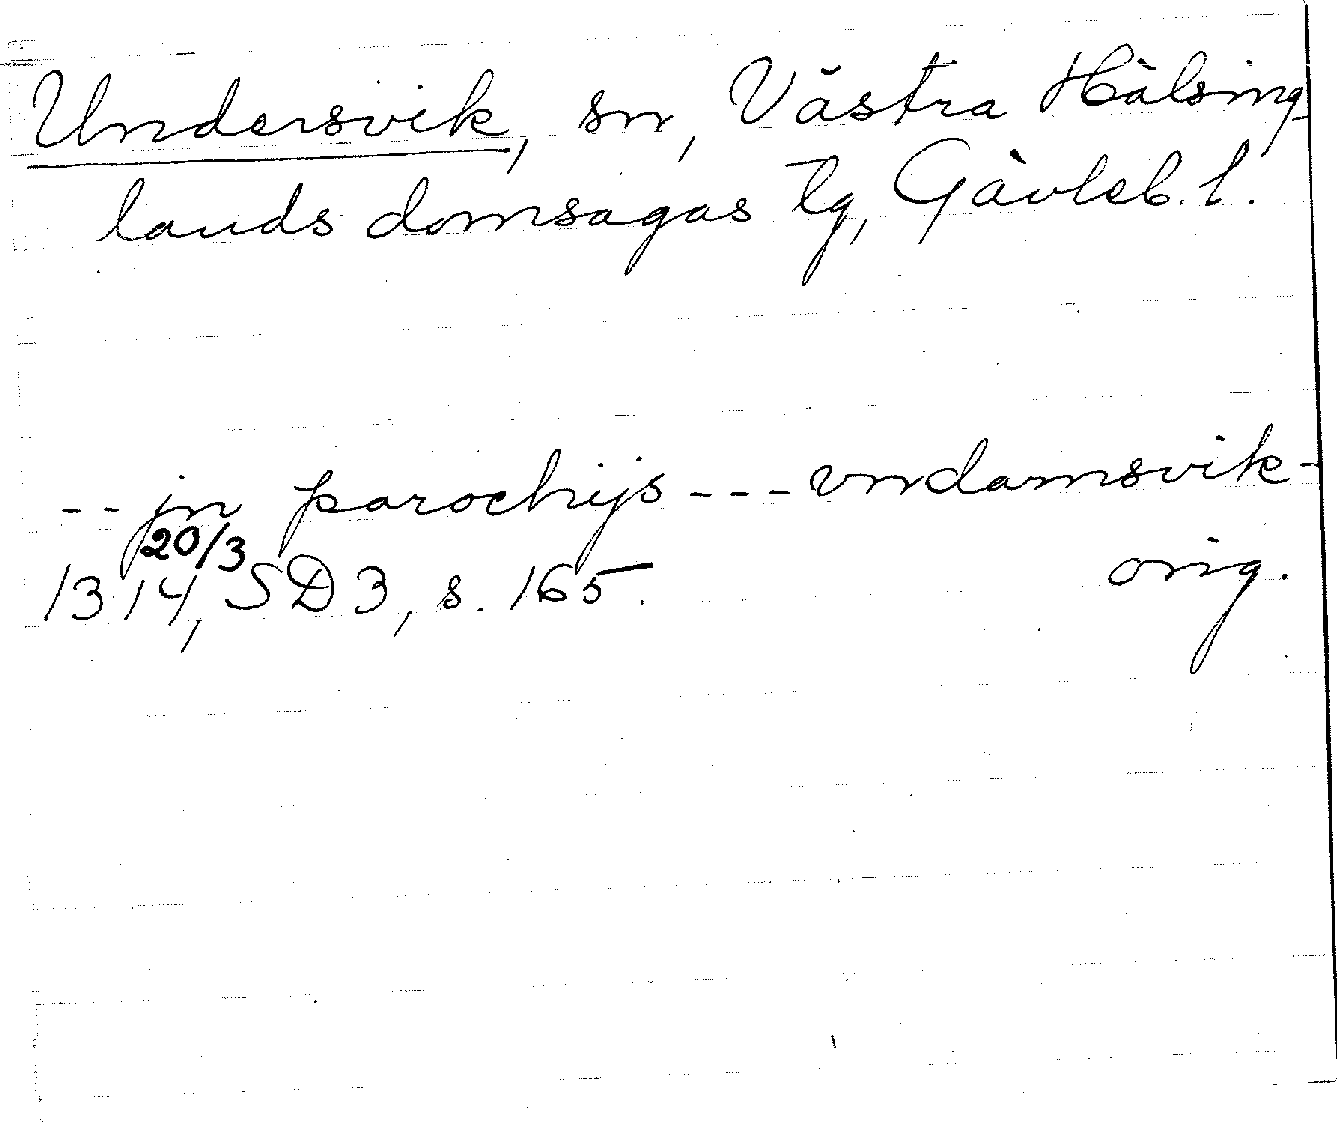 Undersvik, sn, Västra Hälsing-
lands domsagas tg, Gävleb. l.
-- jn parochijs --- vndamsvik -
1314 20/3, SD 3, s. 165. orig.